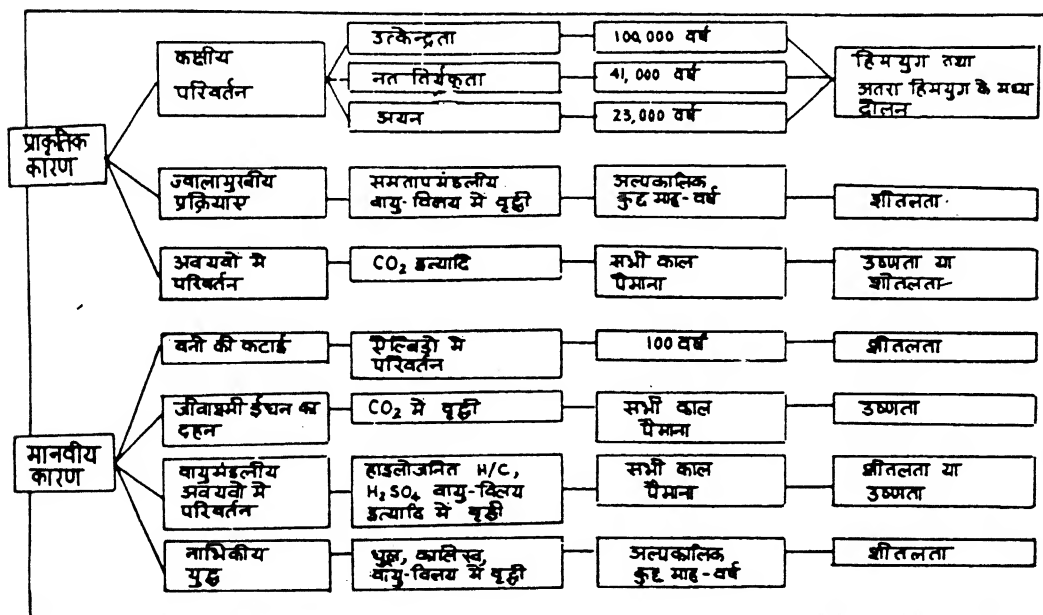 प्राकृतिक
कारण
कक्षीय
परिवर्तन
उत्केन्द्रता
100,000 वर्ष
नत तिर्यकृता
41,000 वर्ष
अयन
23,000 वर्ष
हिमयुग तथा
अतरा हिमयुग के मध्य
दोलन
ज्वालामुखीय
प्रक्रियाए
समतापमंडलीय
वायु-विलय में वृद्धी
अल्पकालिक
कुछ माह-वर्ष
शीतलता
अवयवों मे
परिवर्तन
CO₂ इत्यादि
सभी काल
पैमाना
उष्णता या
शीतलता
मानवीय
कारण
वनो की कटाई
ऐल्बिडो में
परिवर्तन
100 वर्ष
शीतलता
जीवाश्मी ईंधन का
दहन
CO₂ में वृद्धी
सभी काल
पैमाना
उष्णता
वायुमंडलीय
अवयवो मे
परिवर्तन
हाइलोजनित H/C,
H₂SO₄ वायु-विलय
इत्यादि में वृद्धी
सभी काल
पैमाना
शीतलता या
उष्णता
नाभिकीय
युद्ध
धूल, कालिख,
वायु-विलय में वृद्धी
अल्पकालिक
कुछ माह-वर्ष
शीतलता